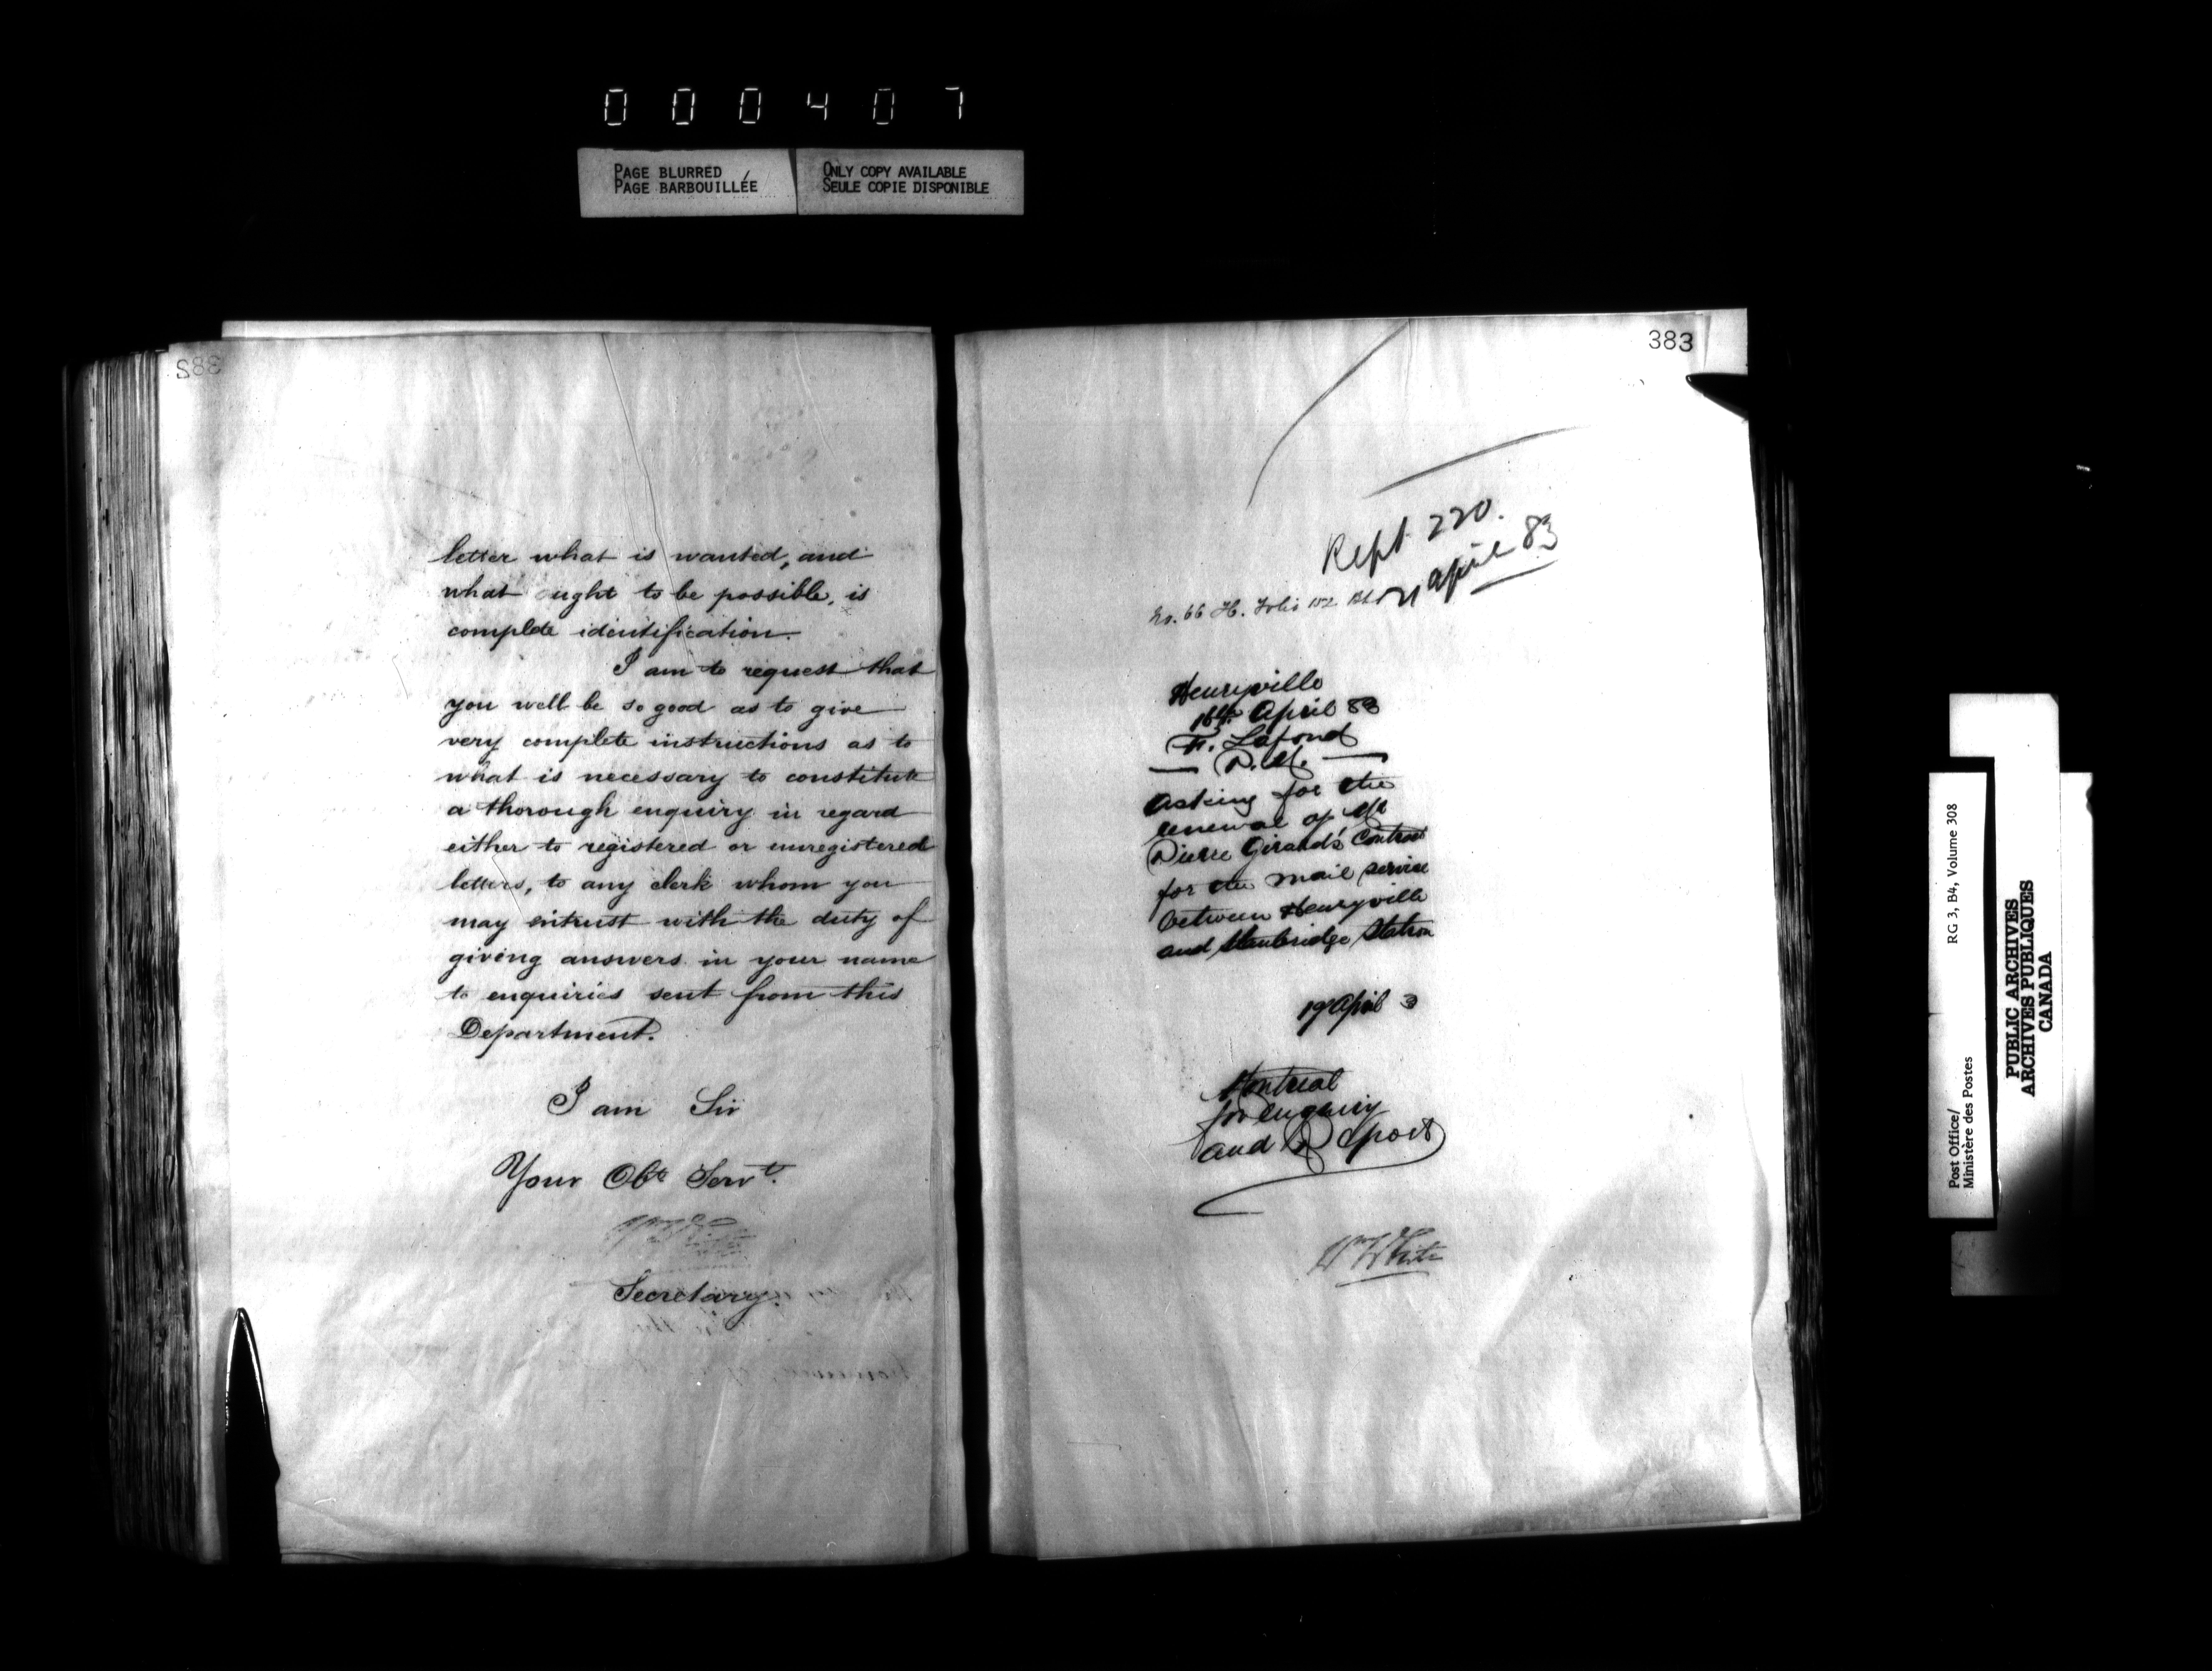 000407
PAGE BLURRED
PAGE BARBOUILLÉE
ONLY COPY AVAILABLE
SEULE COPIE DISPONIBLE
382
letter what is wanted, and
what ought to be possible, is
complete identification.
I am to request that
you will be so good as to give
very complete instructions as to
what is necessary to constitute
a thorough enquiry in regard
either to registered or unregistered
letters, to any clerk whom you
may entrust with the duty of
giving answers in your name
to enquiries sent from this
Department.
I am Sir
Your Obt Servt.
Secretary.
383
Rept 220.
21 April 83
No. 66 H. Folio 152
Henryville
16th April 83
F. Lafond
P.M.
Asking for the
renewal of Mr
Pierre Girard's Contract
for the mail service
between Henryville
and Stanbridge Station
19 April 3
Montreal
for enquiry
and Report
Wm White
Post Office/
Ministère des Postes
RG 3, B4, Volume 308
PUBLIC ARCHIVES
ARCHIVES PUBLIQUES
CANADA